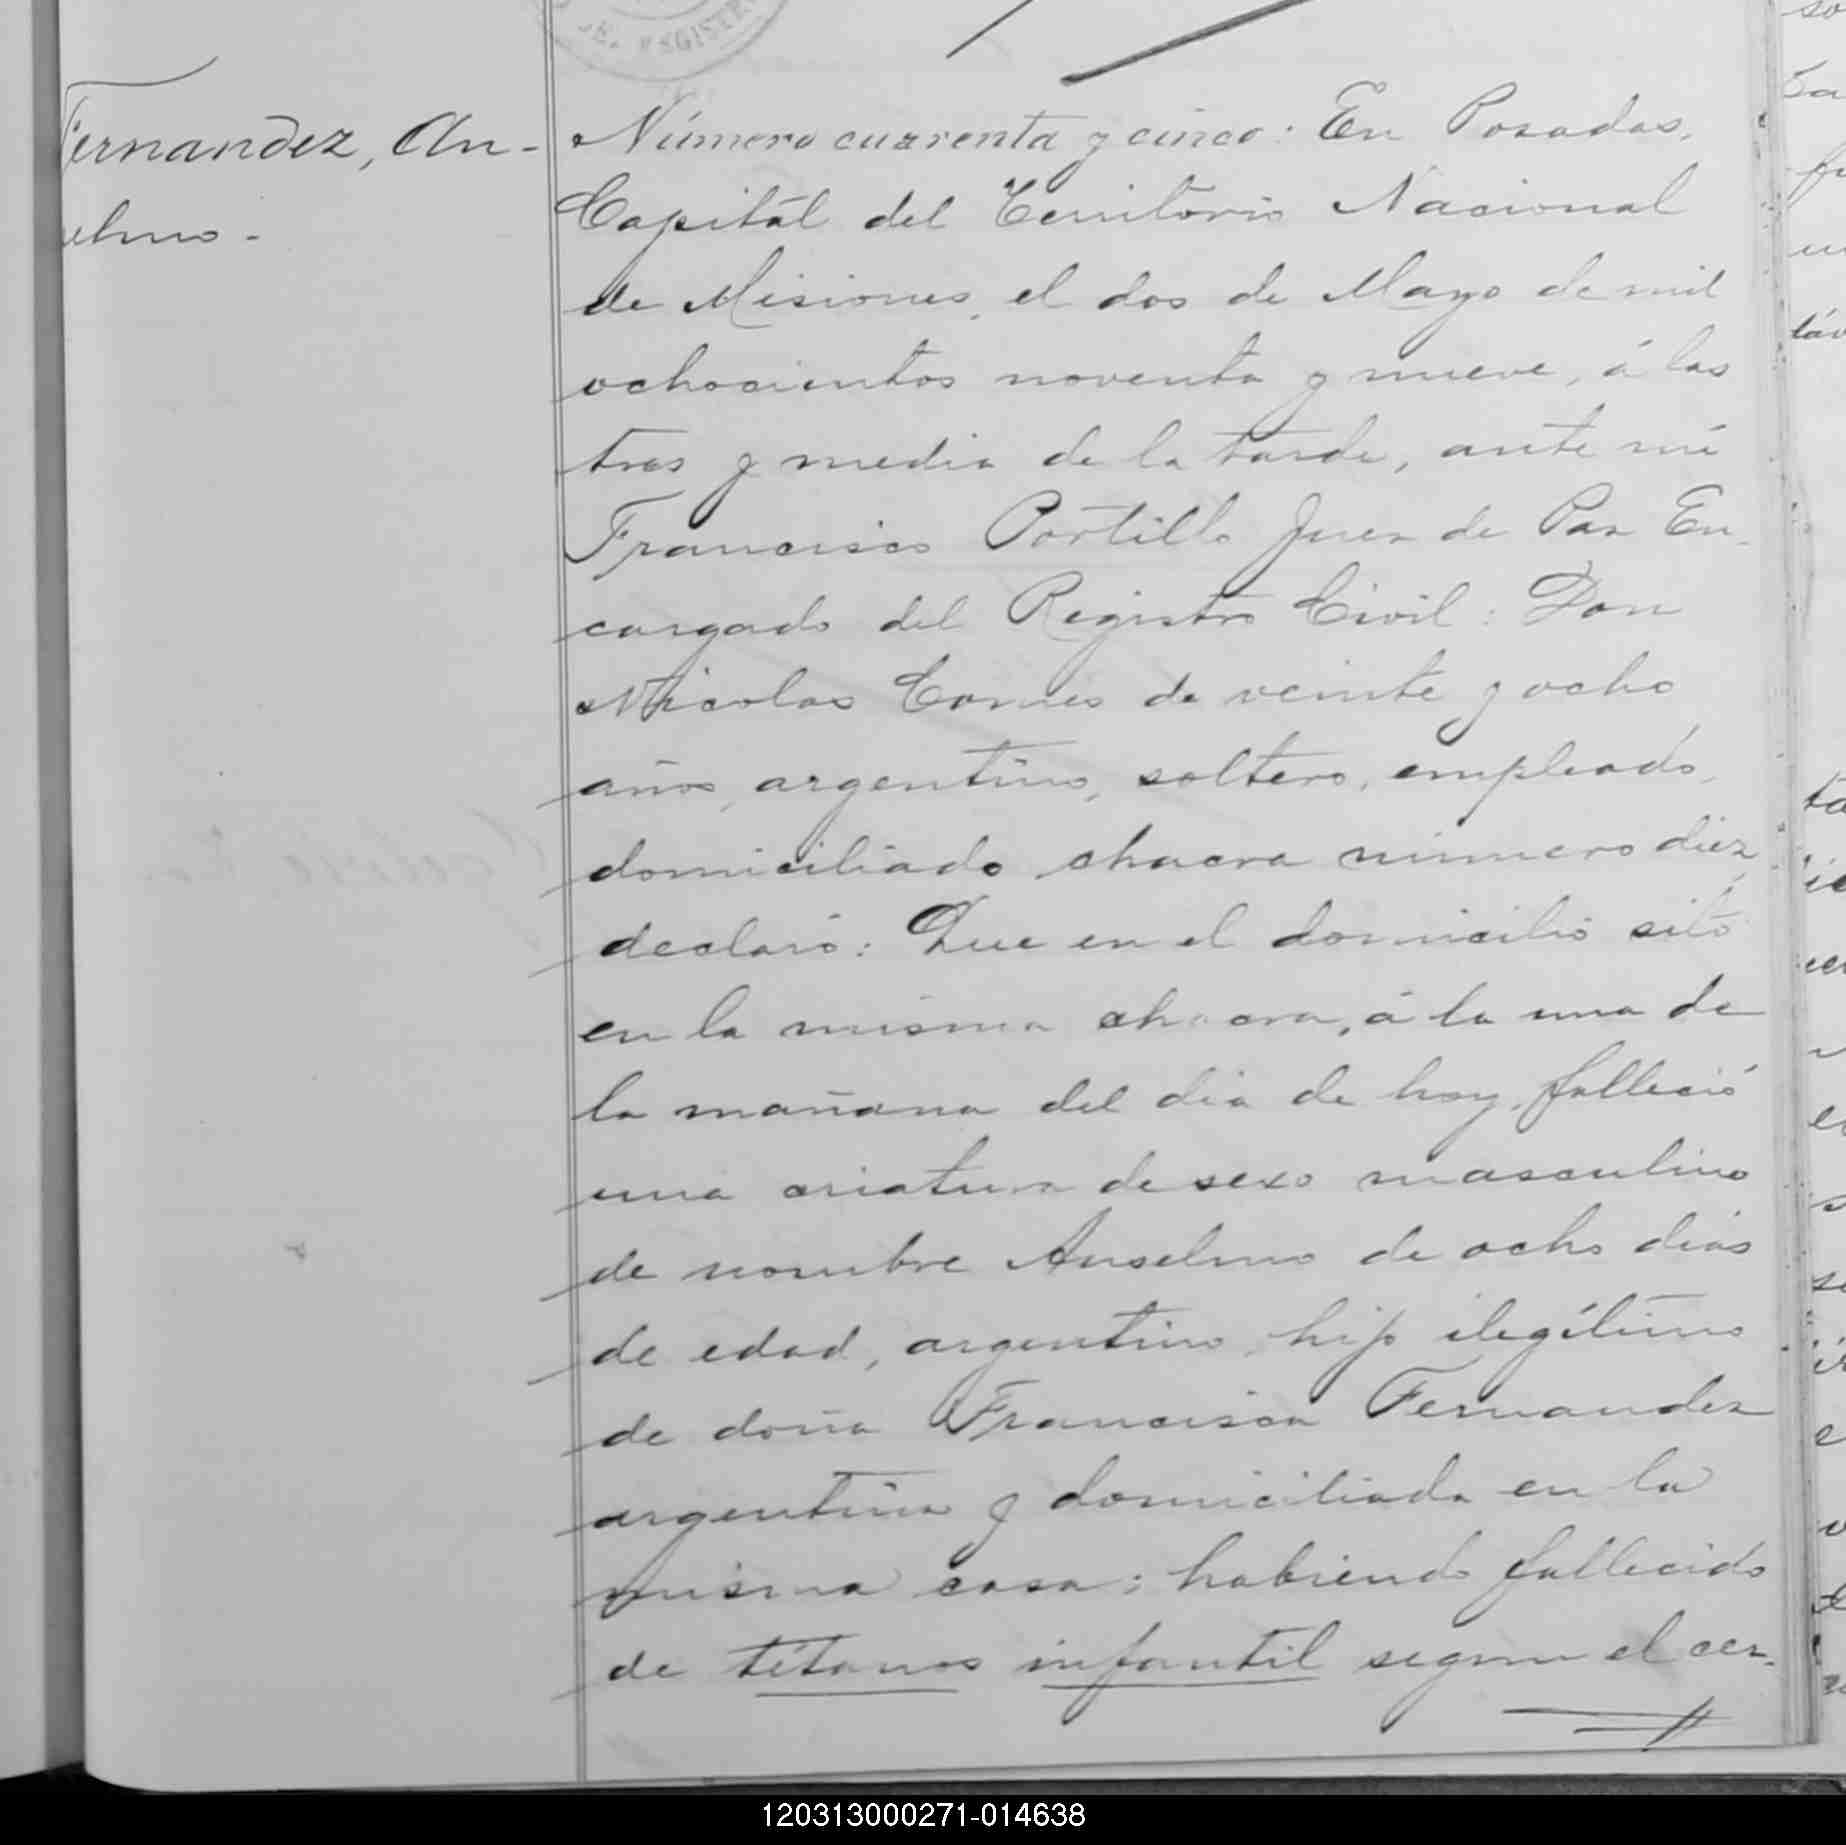 DE REGISTR
Fernandez, An-
selmo -
Número cuarenta y cinco: En Posadas,
Capitál del Territorio Nacional
de Misiones, el dos de Mayo de mil
ochocientos noventa y nueve, á las
tres y media de la tarde, ante mí
Francisco Portillo Juez de Paz En-
cargado del Registro Civil: Don
Nicolas Comes de veinte y ocho
años, argentino, soltero, empleado,
domiciliado chacra número diez,
declaró: Que en el domicilio sito
en la misma chacra, á la una de
la mañana del dia de hoy, falleció
una criatura de sexo masculino
de nombre Anselmo de ocho dias
de edad, argentino, hijo ilegítimo
de doña Francisca Fernandez
argentina y domiciliada en la
misma casa; habiendo fallecido
de tétanos infantil segun el cer-
120313000271-014638